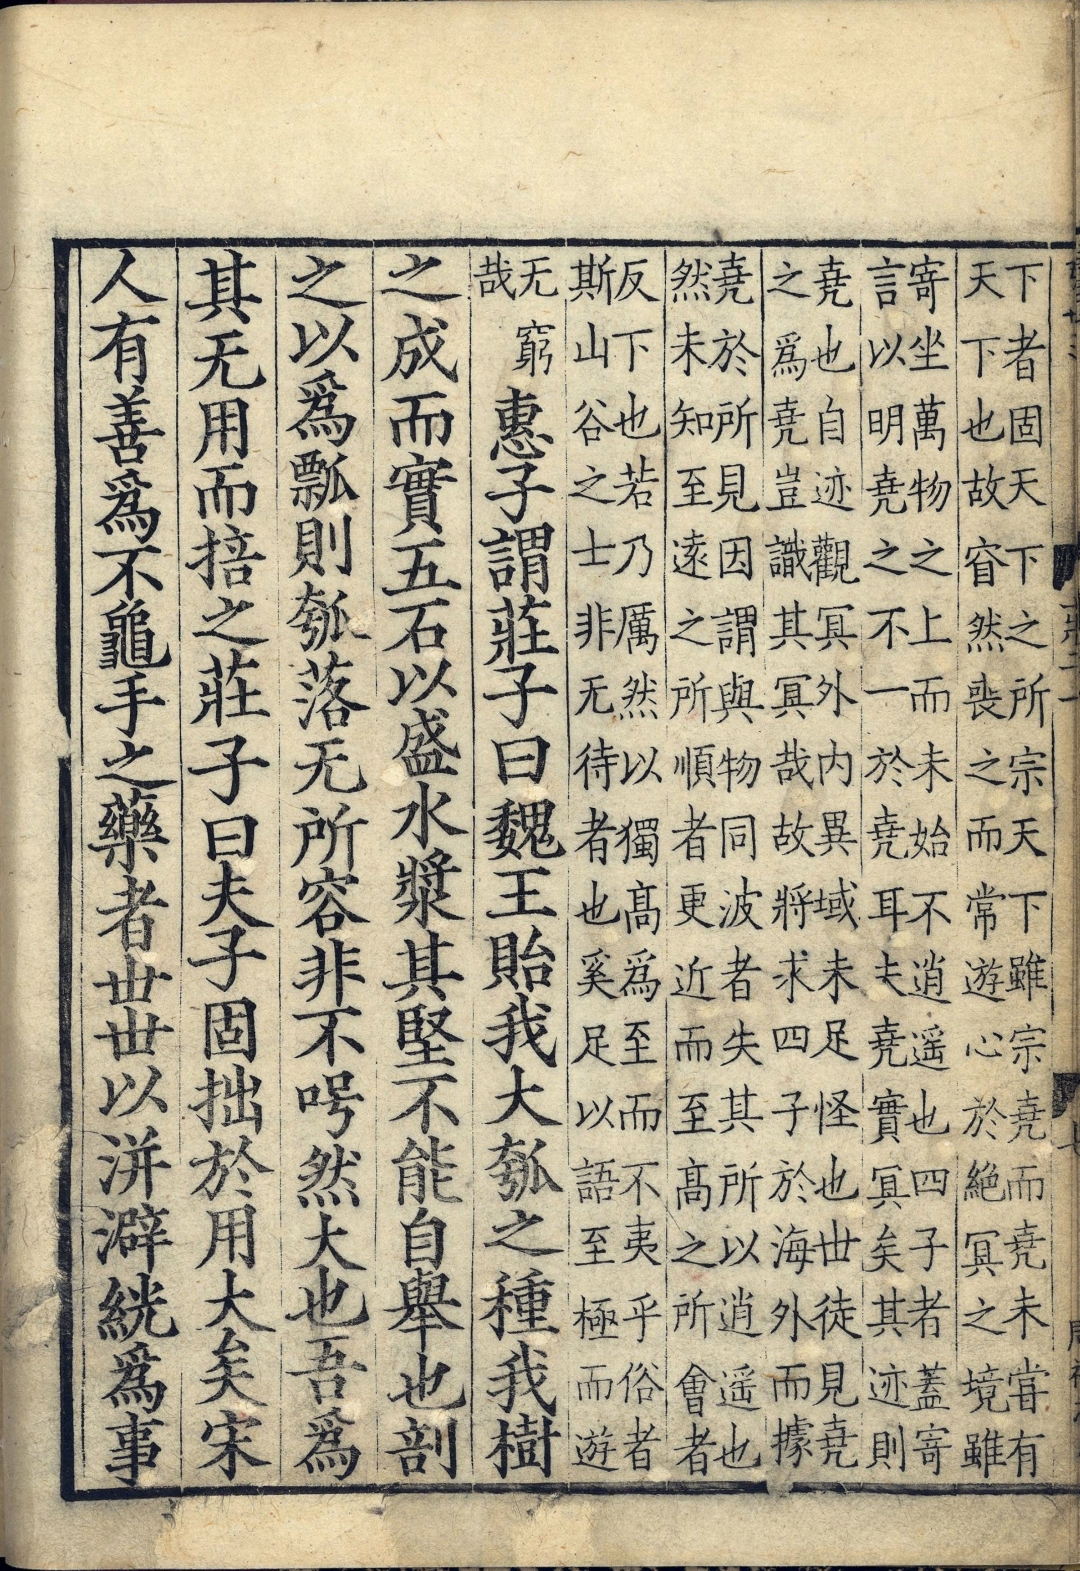 下者固天下之所宗天下雖宗堯而堯未甞有
天下也故窅然喪之而常遊心於絶冥之境雖
寄坐萬物之上而未始不逍遥也四子者蓋寄
言以明堯之不一於堯耳夫堯實冥矣其迹則
堯也自迹觀冥外内異域未足怪也世徒見堯
之爲堯豈識其冥哉故將求四子於海外而據
堯於所見因謂與物同波者失其所以逍遥也
然未知至逺之所順者更近而至髙之所會者
反下也若乃厲然以獨髙爲至而不夷乎俗者
斯山谷之士非无待者也奚足以語至極而遊
无窮
哉
惠子謂莊子曰魏王貽我大瓠之種我樹
之成而實五石以盛水漿其堅不能自舉也剖
之以爲瓢則瓠落无所容非不呺然大也吾爲
其无用而掊之莊子曰夫子固拙於用大矣宋
人有善爲不龜手之藥者丗丗以洴澼絖爲事